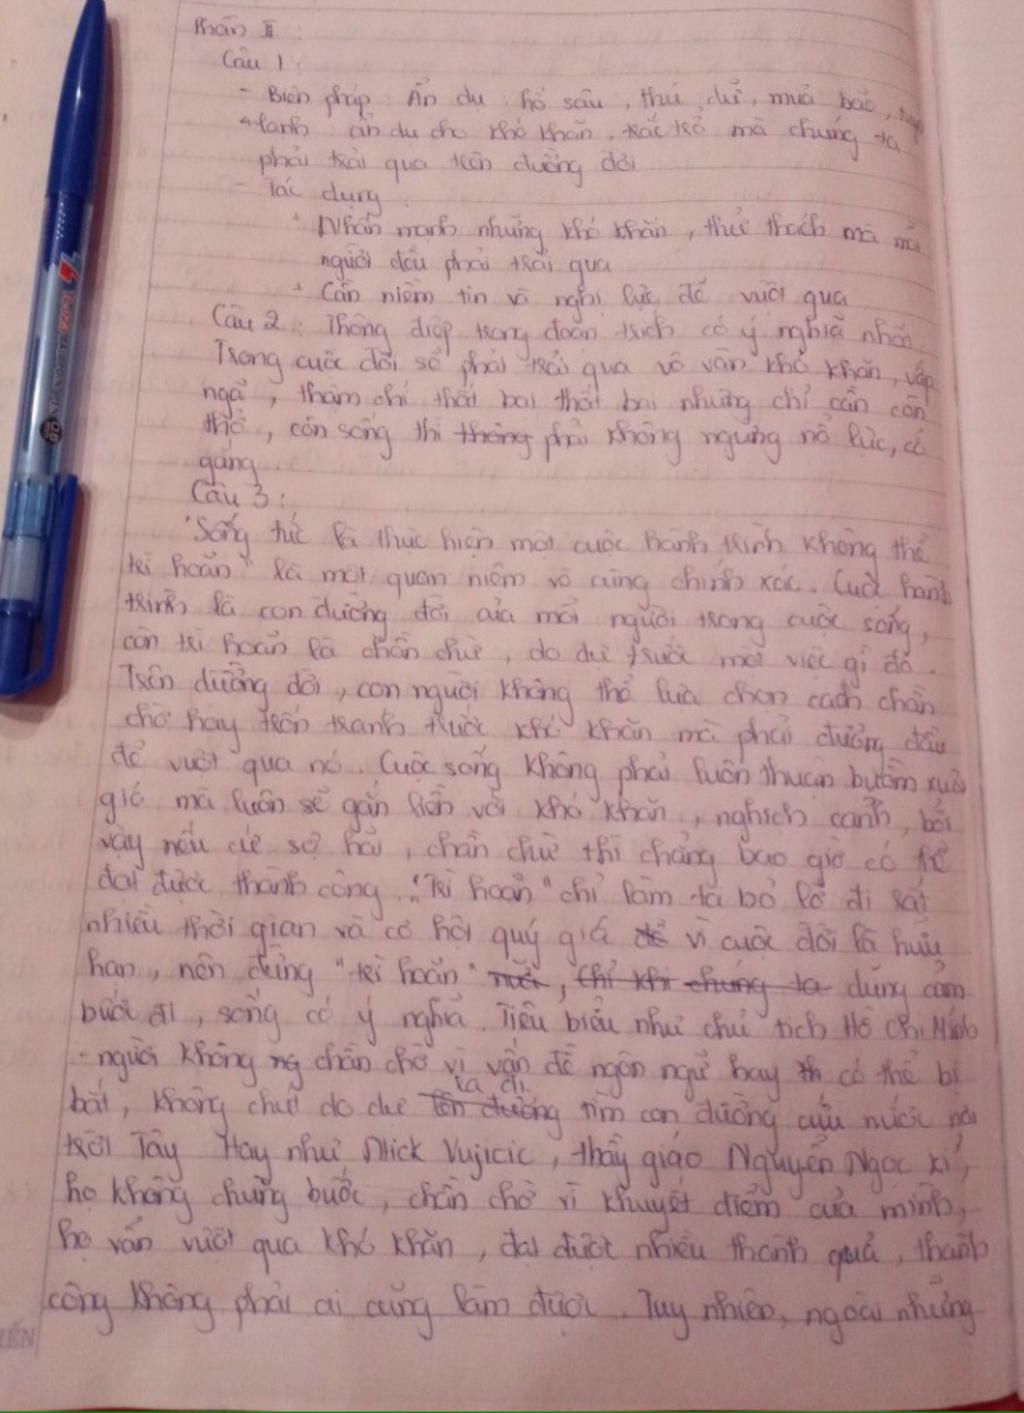 Phần II :
Câu 1 :
- Biện pháp : Ẩn dụ : hố sâu, thú dữ, mưa bão,
lạnh : ẩn dụ cho khó khăn, trắc trở mà chúng ta
phải trải qua trên đường đời
- Tác dụng
+ Nhấn mạnh những khó khăn, thử thách mà mỗi
người đều phải trải qua
+ Cần niềm tin và nghị lực để vượt qua
Câu 2 : Thông điệp trong đoạn trích có ý nghĩa nhất
Trong cuộc đời sẽ phải trải qua vô vàn khó khăn, vấp
ngã, thậm chí thất bại thất bại nhưng chỉ cần còn
thở, còn sống thì phải không ngừng nỗ lực, cố
gắng
Câu 3 :
"Sống tức là thực hiện một cuộc hành trình không thể
trì hoãn" là một quan niệm vô cùng chính xác. Cuộc hành
trình là con đường đời của mỗi người trong cuộc sống,
còn trì hoãn là chần chừ, do dự trước một việc gì đó.
Trên đường đời, con người không thể lựa chọn cách chần
chờ hay trốn tránh trước khó khăn mà phải đương đầu
để vượt qua nó. Cuộc sống không phải luôn thuận buồm xuôi
gió mà luôn sẽ gắn liền với khó khăn, nghịch cảnh, bởi
vậy nếu cứ sợ hãi, chần chừ thì chẳng bao giờ có thể
đạt được thành công. "Trì hoãn" chỉ làm ta bỏ lỡ đi rất
nhiều thời gian và cơ hội quý giá vì cuộc đời là hữu
hạn, nên đừng "trì hoãn", dũng cảm
bước đi, sống có ý nghĩa. Tiêu biểu như chủ tịch Hồ Chí Minh
- người không ng chần chờ vì vấn đề ngôn ngữ hay th có thể bị
bắt, không chút do dự ra đi tìm con đường cứu nước nơi
trời Tây. Hay như Nick Vujicic, thầy giáo Nguyễn Ngọc Kí,
họ không chùng bước, chần chờ vì khuyết điểm của mình,
họ vẫn vượt qua khó khăn, đạt được nhiều thành quả, thành
công không phải ai cũng làm được. Tuy nhiên, ngoài những